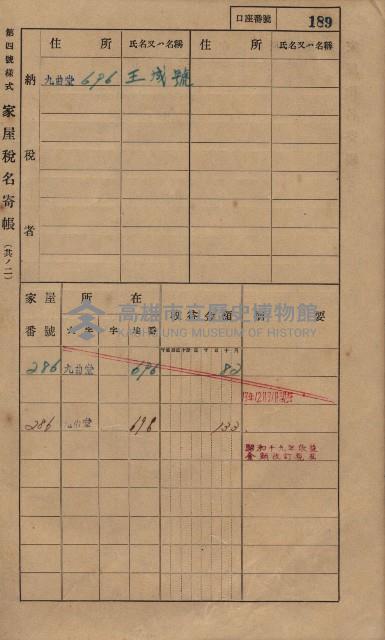 口座番號 189
第四號樣式 家屋稅名寄帳 (其ノ二)
住所 氏名又ハ名稱 住所 氏名又ハ名稱
納稅者
九曲堂 696 王成號
高雄市立歷史博物館
KAOHSIUNG MUSEUM OF HISTORY
家屋番號 所在 要
大字 字 地番
286 九曲堂 696 82
286 九曲堂 696 133
昭和十九年